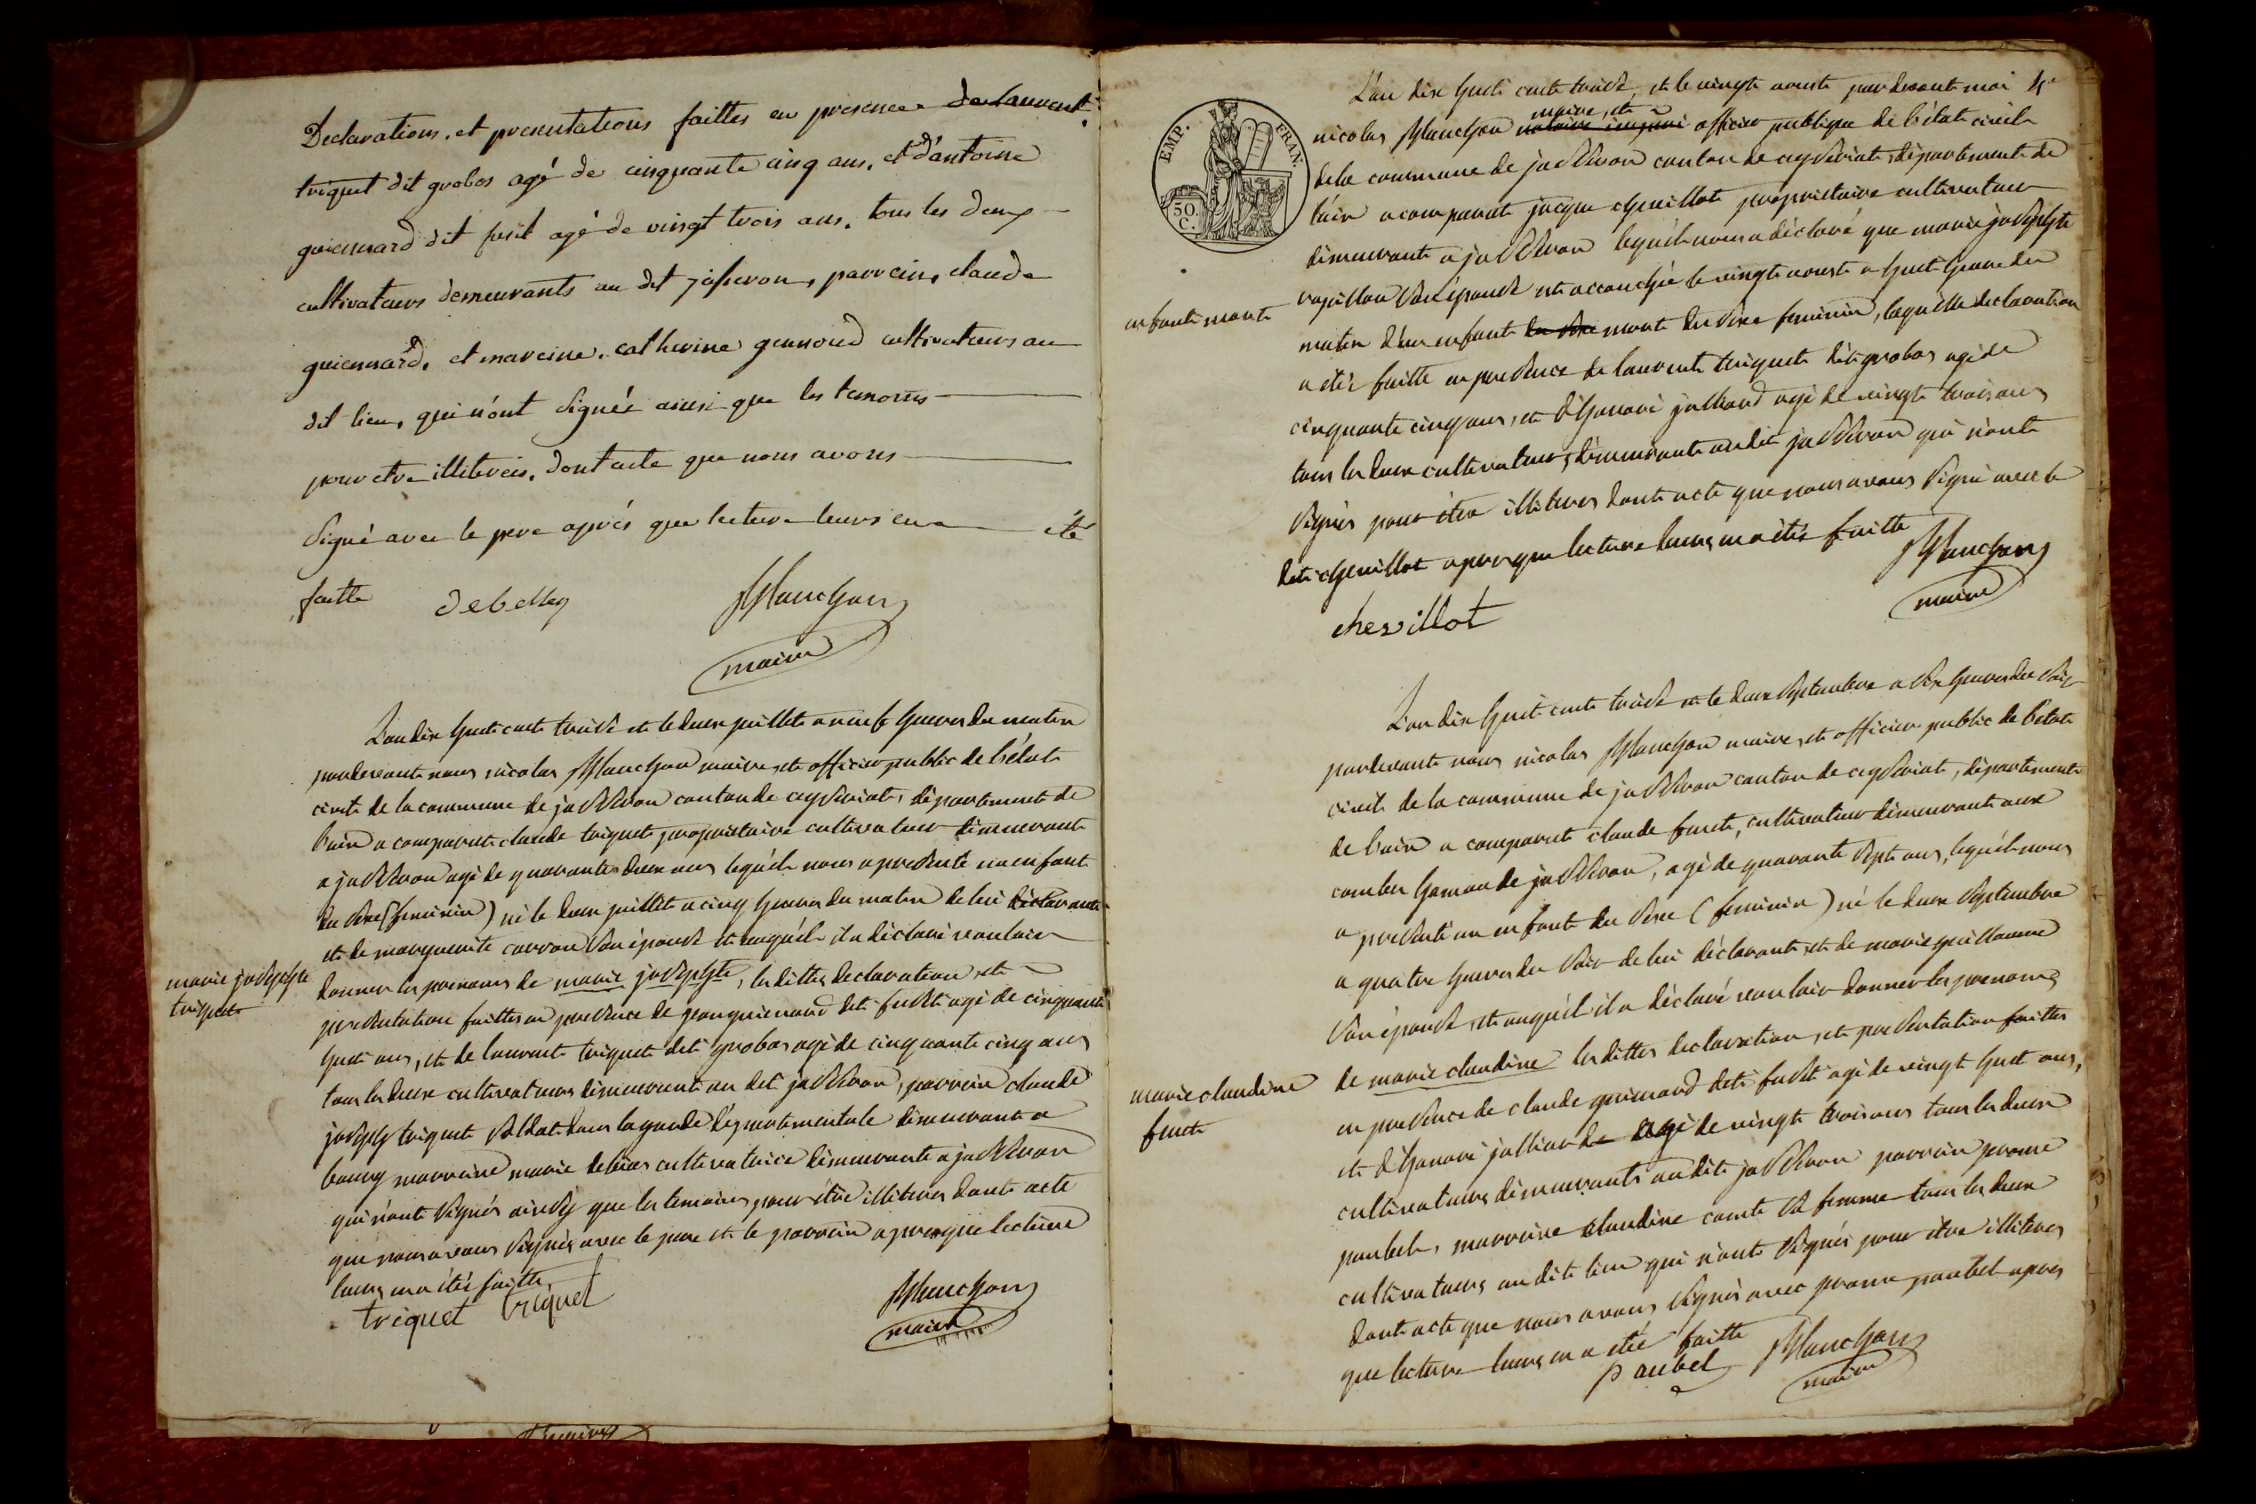 Declarations, et presentations faittes en presence de laurent
triquet dit grobos agé de cinquante cinq ans, et d'antoine
guiennard dit fusil agé de vingt trois ans, tous les deux
cultivateurs demeurants au dit jasseron, parrein, claude
guiennard, et mareine, catherine gennoud cultivateurs au
dit lieu, qui n'ont signéé ainsi que les temoins
pour etre illiterés, dont acte que nous avons
signé avec le pere aprés que lecture leurs en a été
faitte
debelley planchon
maire
L'an dix huit cent treise et le deux juillet a neuf heures du matin
pardevant nous nicolas planchon maire, et officier public de l'état
civil de la commune de jasseron canton de ceyseriat, département de
l'ain a comparut claude triquet propriétaire cultivateur demeurant
a jasseron agé de quarante deux ans lequel nous a presenté un enfant
du sexe (feminin) né le deux juillet a cinq heures du matin de lui déclarant
et de marguerite carron son épouse et auquél il a déclaré vouloir
donner les prenoms de marie josephte, les dittes declaration et
marie josephte
triquet
presentation faittes en presence de guienard dit fusil agé de cinquante
huit ans, et de laurent triquet dit grobos agé de cinquante cinq ans
tous les deux cultivateurs demeurant au dit jasseron, parrein claude
joseph triquet soldat dans la garde départementale demeurant a
bourg marreine marie cultivatrice demeurante a jasseron
qui n'ont signés ainsy que les temoins pour être illiteres dont acte
que nous avons signés avec le pere et le parrein apres que lecture
leurs en a étés faitte
triquet triquet planchon
maire
EMP. FRAN.
50.
C.
L'an dix huit cent treise, et le vingt aoust par devant moi
maire, et
nicolas planchon officier publique de l'état civil
de la commune de jasseron canton de ceyseriat, département de
l'ain a comparut jacque chevillot propriétaire cultivateur
demeurant a jasseron lequél nous a déclaré que marie josephte
son épouse est accouchée le vingt aoust a huit heure du
enfant mort
matin d'un enfant mort du sexe feminin, laquelle declaration
a étéé faitte en presence de laurent triquet dit grobos agé de
cinquante cinq ans, et d'honoré agé de vingt trois ans
tous les deux cultivateurs demeurant au dit jasseron qui n'ont
signés pour être illiteres dont acte que nous avons signé avec le
dit chevillot apres que lecture leurs en a étés faitte
planchon
maire
chevillot
L'an dix huit cent treise et le deux septembre a six heures du soir
pardevant nous nicolas planchon maire, et officier public de l'état
civil de la commune de jasseron canton de ceyseriat, département
de l'ain a comparut claude furet, cultivateur demeurant aux
combes hameau de jasseron, agé de quarante sept ans, lequél nous
a presenté un enfant du sexe (feminin) né le deux septembre
a quatre heures du soir de lui déclarant, et de marie guillaume
son épouse, et auquél il a déclaré vouloir donner les prenoms
marie claudine
furet
de marie claudine les dittes declaration, et presentation faittes
en presence de claude guienard dit fusil agé de vingt huit ans,
et d'honoré agé de vingt trois ans tous les deux
cultivateurs demeurants au dit jasseron parrein
paubel, marreine claudine comte sa femme tous les deux
cultivateurs au dit lieu qui n'ont signés pour être illiteres
dont acte que nous avons signés avec paubel apres
que lecture leurs en a étéé faitte
paubel planchon
maire